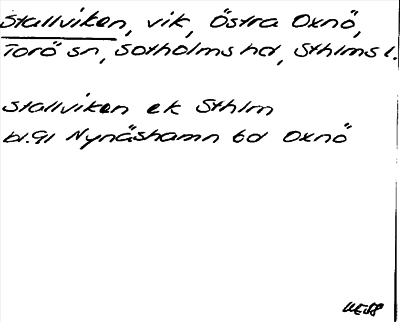 Stallviken, vik, Östra Oxnö,
Torö sn, Sotholms hd, Sthlms l.
Stallviken ek Sthlm
bl. 91 Nynäshamn 6d Oxnö